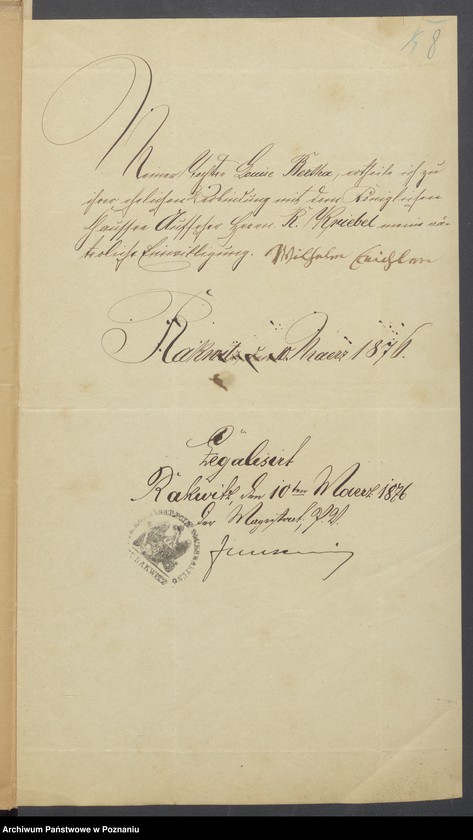 8
Meiner Tochter Louise Bertha, ertheile ich zu
ihrer ehelichen Verbindung mit dem Königlichen
Aufseher Herrn R. Kriebel meine vä-
terliche Einwilligung. Wilhelm
Rakwitz den 10 Maerz 1876.
Legalisirt
Rakwitz, den 10ten Maerz 1876
der Magistrat, J. V.
Archiwum Państwowe w Poznaniu